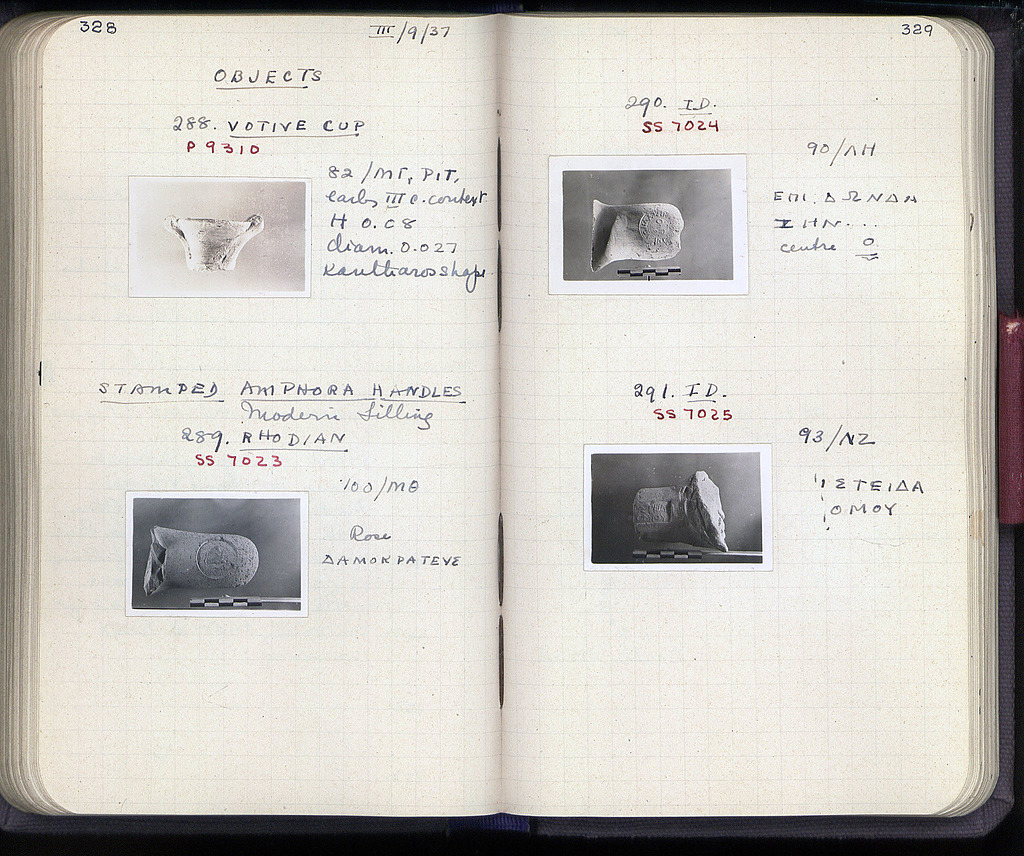 328
III/9/37
OBJECTS
288. VOTIVE CUP
P 9310
82/ΜΓ, PIT,
early III c. context
H 0.08
diam. 0.027
Kantharos shape
STAMPED AMPHORA HANDLES
Modern filling
289. RHODIAN
SS 7023
100/ΜΘ
Rose
ΔΑΜΟΚΡΑΤΕΥΣ
329
290. ID.
SS 7024
90/ΛΗ
ΕΠΙ. ΔΩΝΔΑ
ΣΗΝ...
centre
291. ID.
SS 7025
93/ΝΖ
ΙΣΤΕΙΔΑ
ΟΜΟΥ